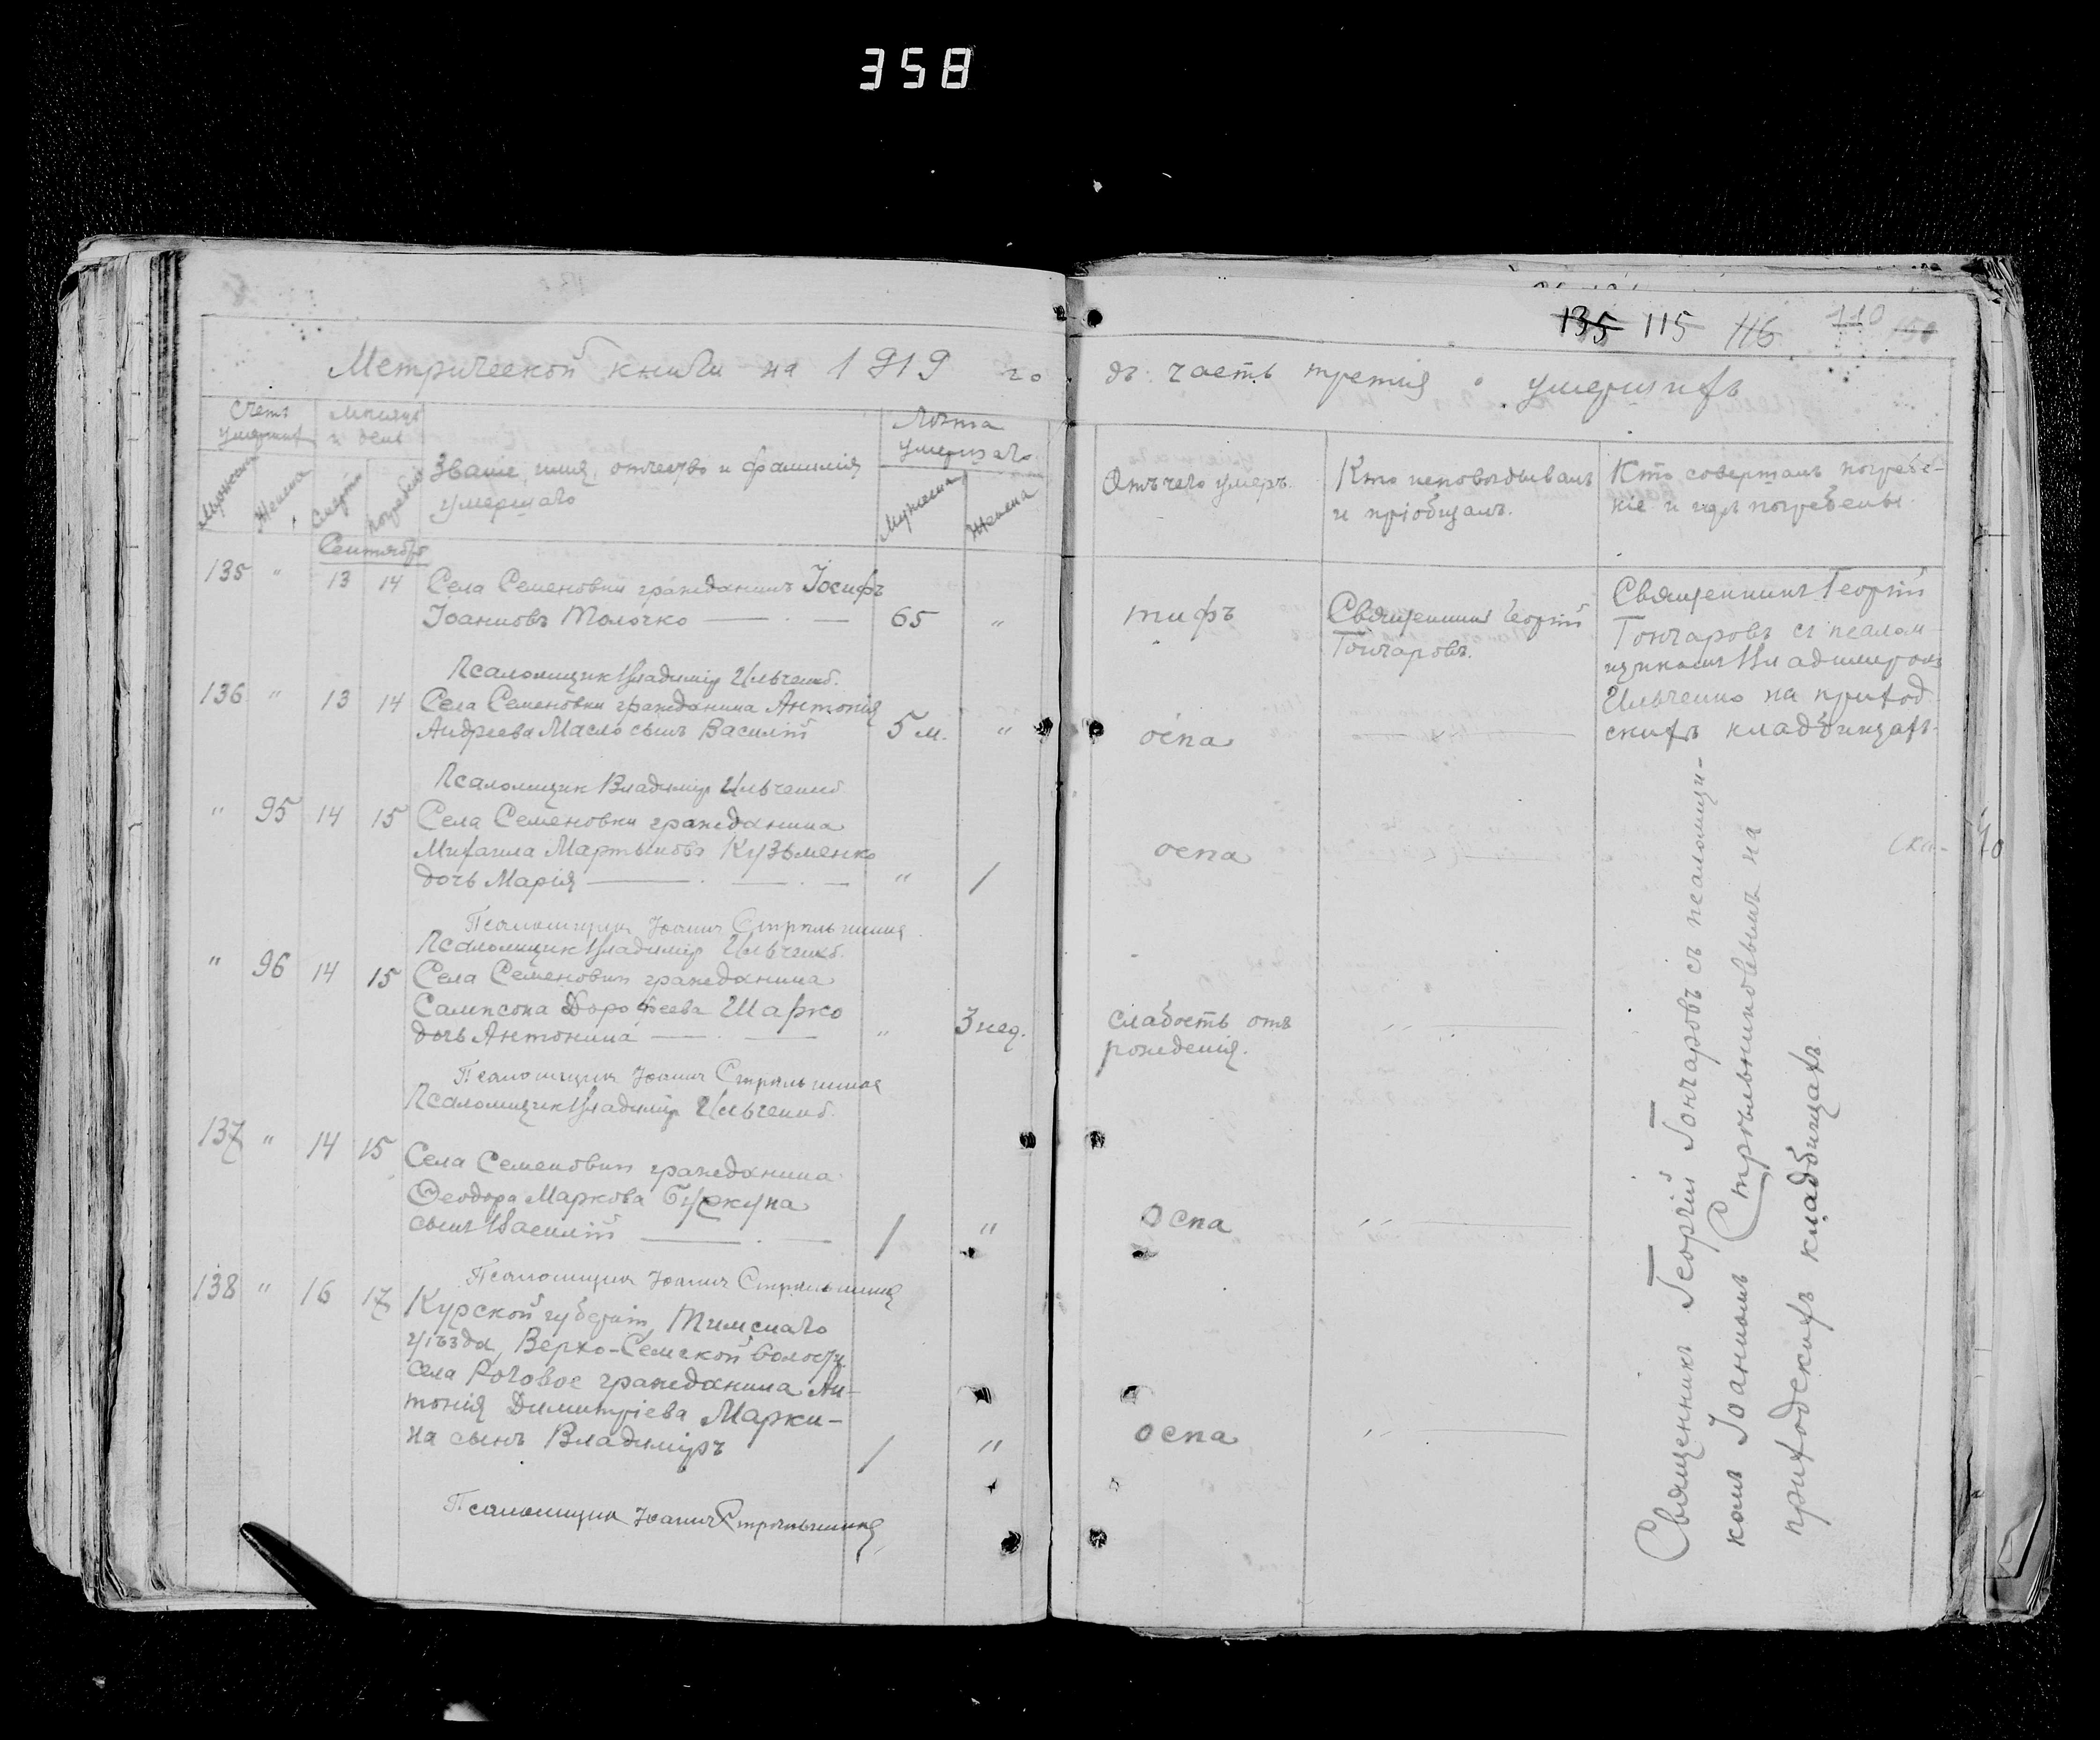 358
135 115 116 110 150
Метрической книги на 1919 го
дъ часть третія о умершихъ
Счетъ умершихъ
Мужеска
Женска
Мѣсяцъ и день
Смерти
погребенія
Званіе, имя, отчество и фамилія
умершаго
Лѣта
умершаго
Мужеска
Женска
Отъ чего умеръ.
Кто исповѣдывалъ
и пріобщалъ.
Кто совершалъ погребе-
ніе и гдѣ погребены
Сентябрь
135 " 13 14 Села Семеновки гражданинъ Іосифъ
Іоанновъ Молочко 65 "
тифъ
Священникъ Георгій
Гончаровъ.
Священникъ Георгій
Гончаровъ съ псалом
щикомъ Владиміромъ
Ильченко на приход
скихъ кладбищахъ.
Псаломщикъ Владимір Ильченко.
136 " 13 14 Села Семеновки гражданина Антонія
Андреева Масло сынъ Василій 5 м. "
оспа
Псаломщик Владимір Ильченко
" 95 14 15 Села Семеновки гражданина
Михаила Мартынова Кузьменко
дочь Марія " 1
оспа
Псаломщикъ Іоаннъ Стрѣльника
Псаломщик Владимір Ильченко.
" 96 14 15 Села Семеновки гражданина
Сампсона Дорофеева Шарко
дочь Антонина " 3 нед.
слабость отъ
рожденія. "
Псаломщикъ Іоаннъ Стрѣльника
Псаломщик Владимір Ильченко.
137 " 14 15 Села Семеновки гражданина
Ѳеодора Маркова Буркуна
сынъ Василій 1 "
оспа "
Псаломщикъ Іоаннъ Стрѣльника
138 " 16 17 Курской губерніи, Тимскаго
уѣзда, Верхо-Семской волости
села Роговое гражданина Ан-
тонія Димитріева Марки-
на сынъ Владиміръ 1 "
оспа "
Псаломщикъ Іоаннъ Стрѣльника
Священникъ Георгій Гончаровъ съ псаломщи-
комъ Іоанномъ Стрѣльниковымъ на
приходскихъ кладбищахъ.